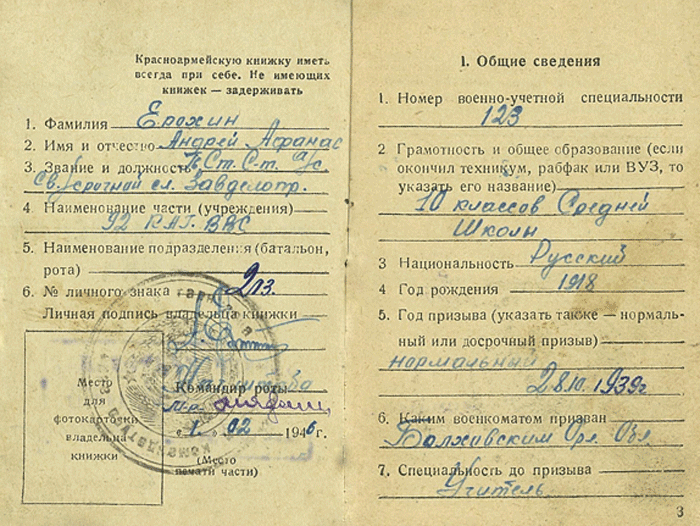 Красноармейскую книжку иметь
всегда при себе. Не имеющих
книжек — задерживать
1. Фамилия Ерохин
2. Имя и отчество Андрей Афанас
3. Звание и должность Ст. С-т. а/с.
Св/срочной сл. Завделопр.
4 Наименование части (учреждения)
92 ВВС
5. Наименование подразделения (батальон,
рота)
6. № личного знака 213.
Личная подпись владельца книжки
Место
для
фотокарточки
владельца
книжки
Командир роты
М-р
„ 1 " 02 1946 г.
(Место
печати части)
1. Общие сведения
1. Номер военно-учетной специальности
123
2 Грамотность и общее образование (если
окончил техникум, рабфак или ВУЗ, то
указать его название)
10 классов Средней
Школы
3 Национальность Русский
4 Год рождения 1918
5. Год призыва (указать также — нормаль-
ный или досрочный призыв)
нормальный
28.10.1939г
6. Каким военкоматом призван
Болховским Орл. Обл.
7. Специальность до призыва
Учитель
3